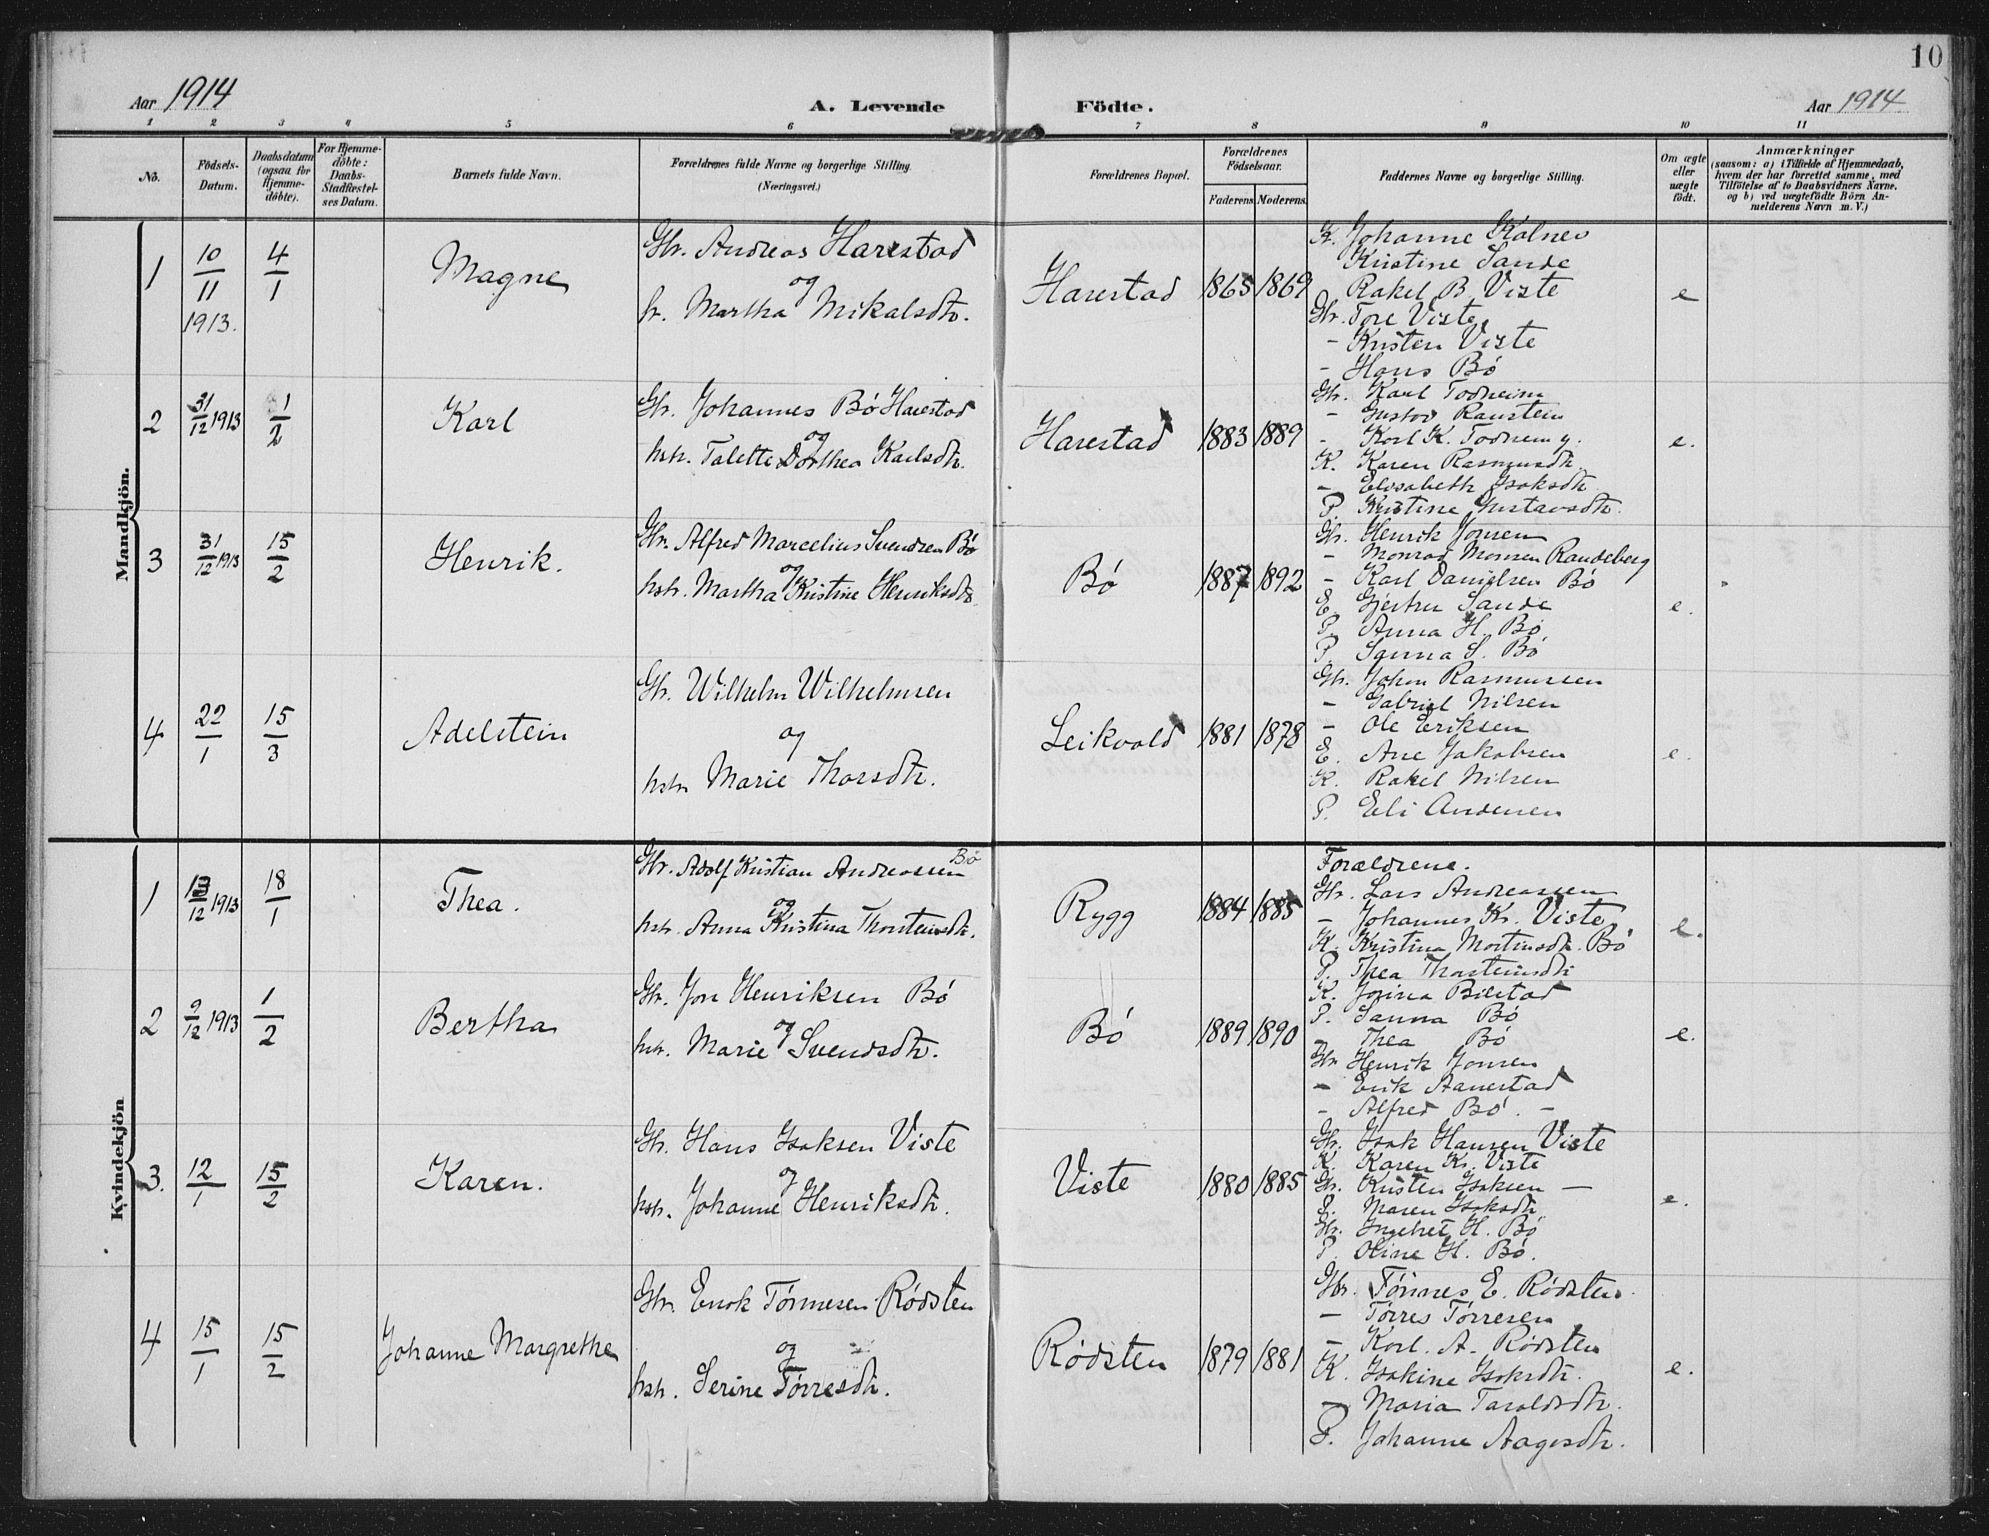 10
Aar 1914
A. Levende
Födte.
Aar 1914
1 2 3 4 5 6 7 8 9 10 11
No.
Födsels-Datum.
Daabsdatum (ogsaa for Hjemme-döbte).
For Hjemme-döbte: Daabs-Stadfæstel-ses Datum.
Barnets fulde Navn.
Forældrenes fulde Navne og borgerlige Stilling. (Næringsvei.)
Forældrenes Bopæl.
Forældrenes Födselsaar.
Faderens Moderens
Faddernes Navne og borgerlige Stilling.
Om ægte eller uægte födt.
Anmærkninger
(saasom: a) i Tilfælde af Hjemmedaab, hvem der har forrettet samme, med Tilföielse af to Daabsvidners Navne, og b) ved uægtefödte Börn An-melderens Navn m. V.)
Mandkjön.
1
10/11 1913.
4/1
Magne
Gbr. Andreas Harestad
og
h. Martha Mikalsdtr.
Harestad
1865 1869
K. Johanne Kalnes
Kristine Sande
Rakel B. Viste
Gbr. Tore Viste
- Kristen Viste
- Hans Bö
e
2
31/12 1913
1/2
Karl
Gbr. Johannes Bö Harestad
og
hstr. Talette Dorthea Karlsdtr.
Harestad
1883 1889
Gbr. Karl Todneim
- Gustav Ranstein
- Karl K. Todnem y.
K. Karen Rasmusdtr.
- Elisabeth Isaksdtr.
P. Kristine Gustavsdtr.
e.
3
31/12 1913
15/2
Henrik.
Gbr. Alfred Marcelius Svendsen Bö
og
hstr. Martha Kristine Henriksdtr.
Bö
1887 1892
Gbr. Henrik Jonsen
- Monrad Monsen Randeberg
- Karl Danielsen Bö
E. Gjertru Sande
P. Anna H. Bö
P. Sanna S. Bö
e.
4
22/1
15/3
Adelstein
Gbr. Wilhelm Wilhelmsen
og
hstr. Marie Thorsdtr.
Leikvold
1881 1878
Gbr. Johan Rasmussen
- Gabriel Nilsen
- Ole Eriksen
E. Ane Jakobsen
K. Rakel Nilsen
P. Eli Andersen
e.
Kvindekjön
1
/12 1913
18/1
Thea.
Gbr. Adolf Kristian Andreassen Bö
og
hstr. Anna Kristina Thorsteinsdtr.
Rygg
1884 1885
Forældrene.
Gbr. Lars Andreassen
- Johannes Kr. Viste
K. Kristina Mortinsdtr. Bö
P. Thea Thorsteinsdtr
e.
2
9/12 1913
1/2
Bertha
Gbr. Jon Henriksen Bö
og
hstr. Marie Svendsdtr.
Bö
1889 1890
K. Jonina Bilstad
P. Sanna Bö
- Thea Bö
Gbr. Henrik Jonsen
- Erik Aanestad
- Alfred Bö. -
e.
3.
12/1
15/2
Karen.
Gbr. Hans Isaksen Viste
og
hstr. Johanne Henriksdtr.
Viste
1880 1885
Gbr. Isak Hansen Viste
K. Karen Kr. Viste
Gbr. Kristen Isaksen -
P. Maren Isaksdtr
Gbr. Ingebret H. Bö
P. Oline H. Bö.
e.
4
15/1
15/2
Johanne Margrethe
Gbr. Enok Tönnesen Rödsten
og
hstr. Serine Törresdtr.
Rödsten
1879 1881
Gbr. Tönnes E. Rödsten.
- Törres Törresen
- Karl. A. Rödsten
K. Isakine Isaksdtr.
- Maria Taraldsdtr.
P. Johanne Aagesdtr.
e.